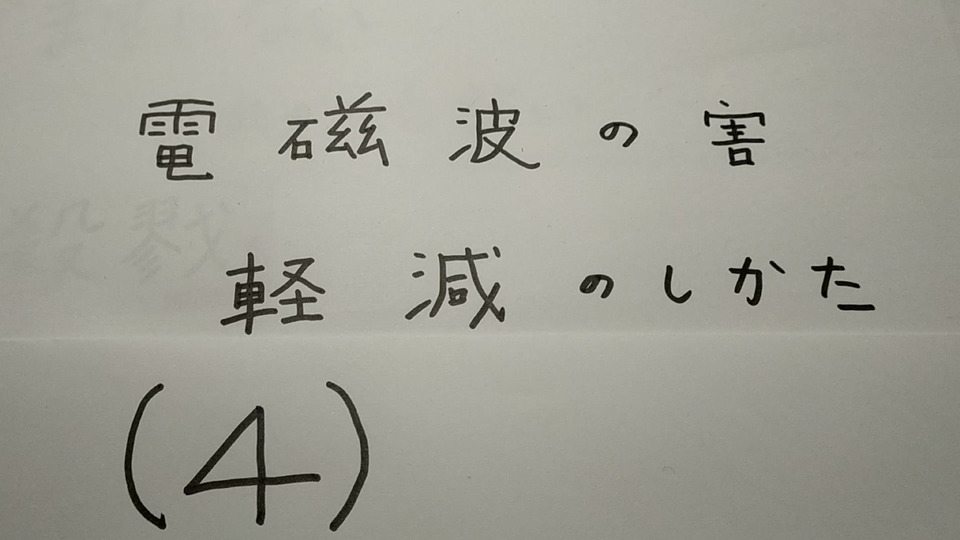 電磁波の害
軽減のしかた
(4)